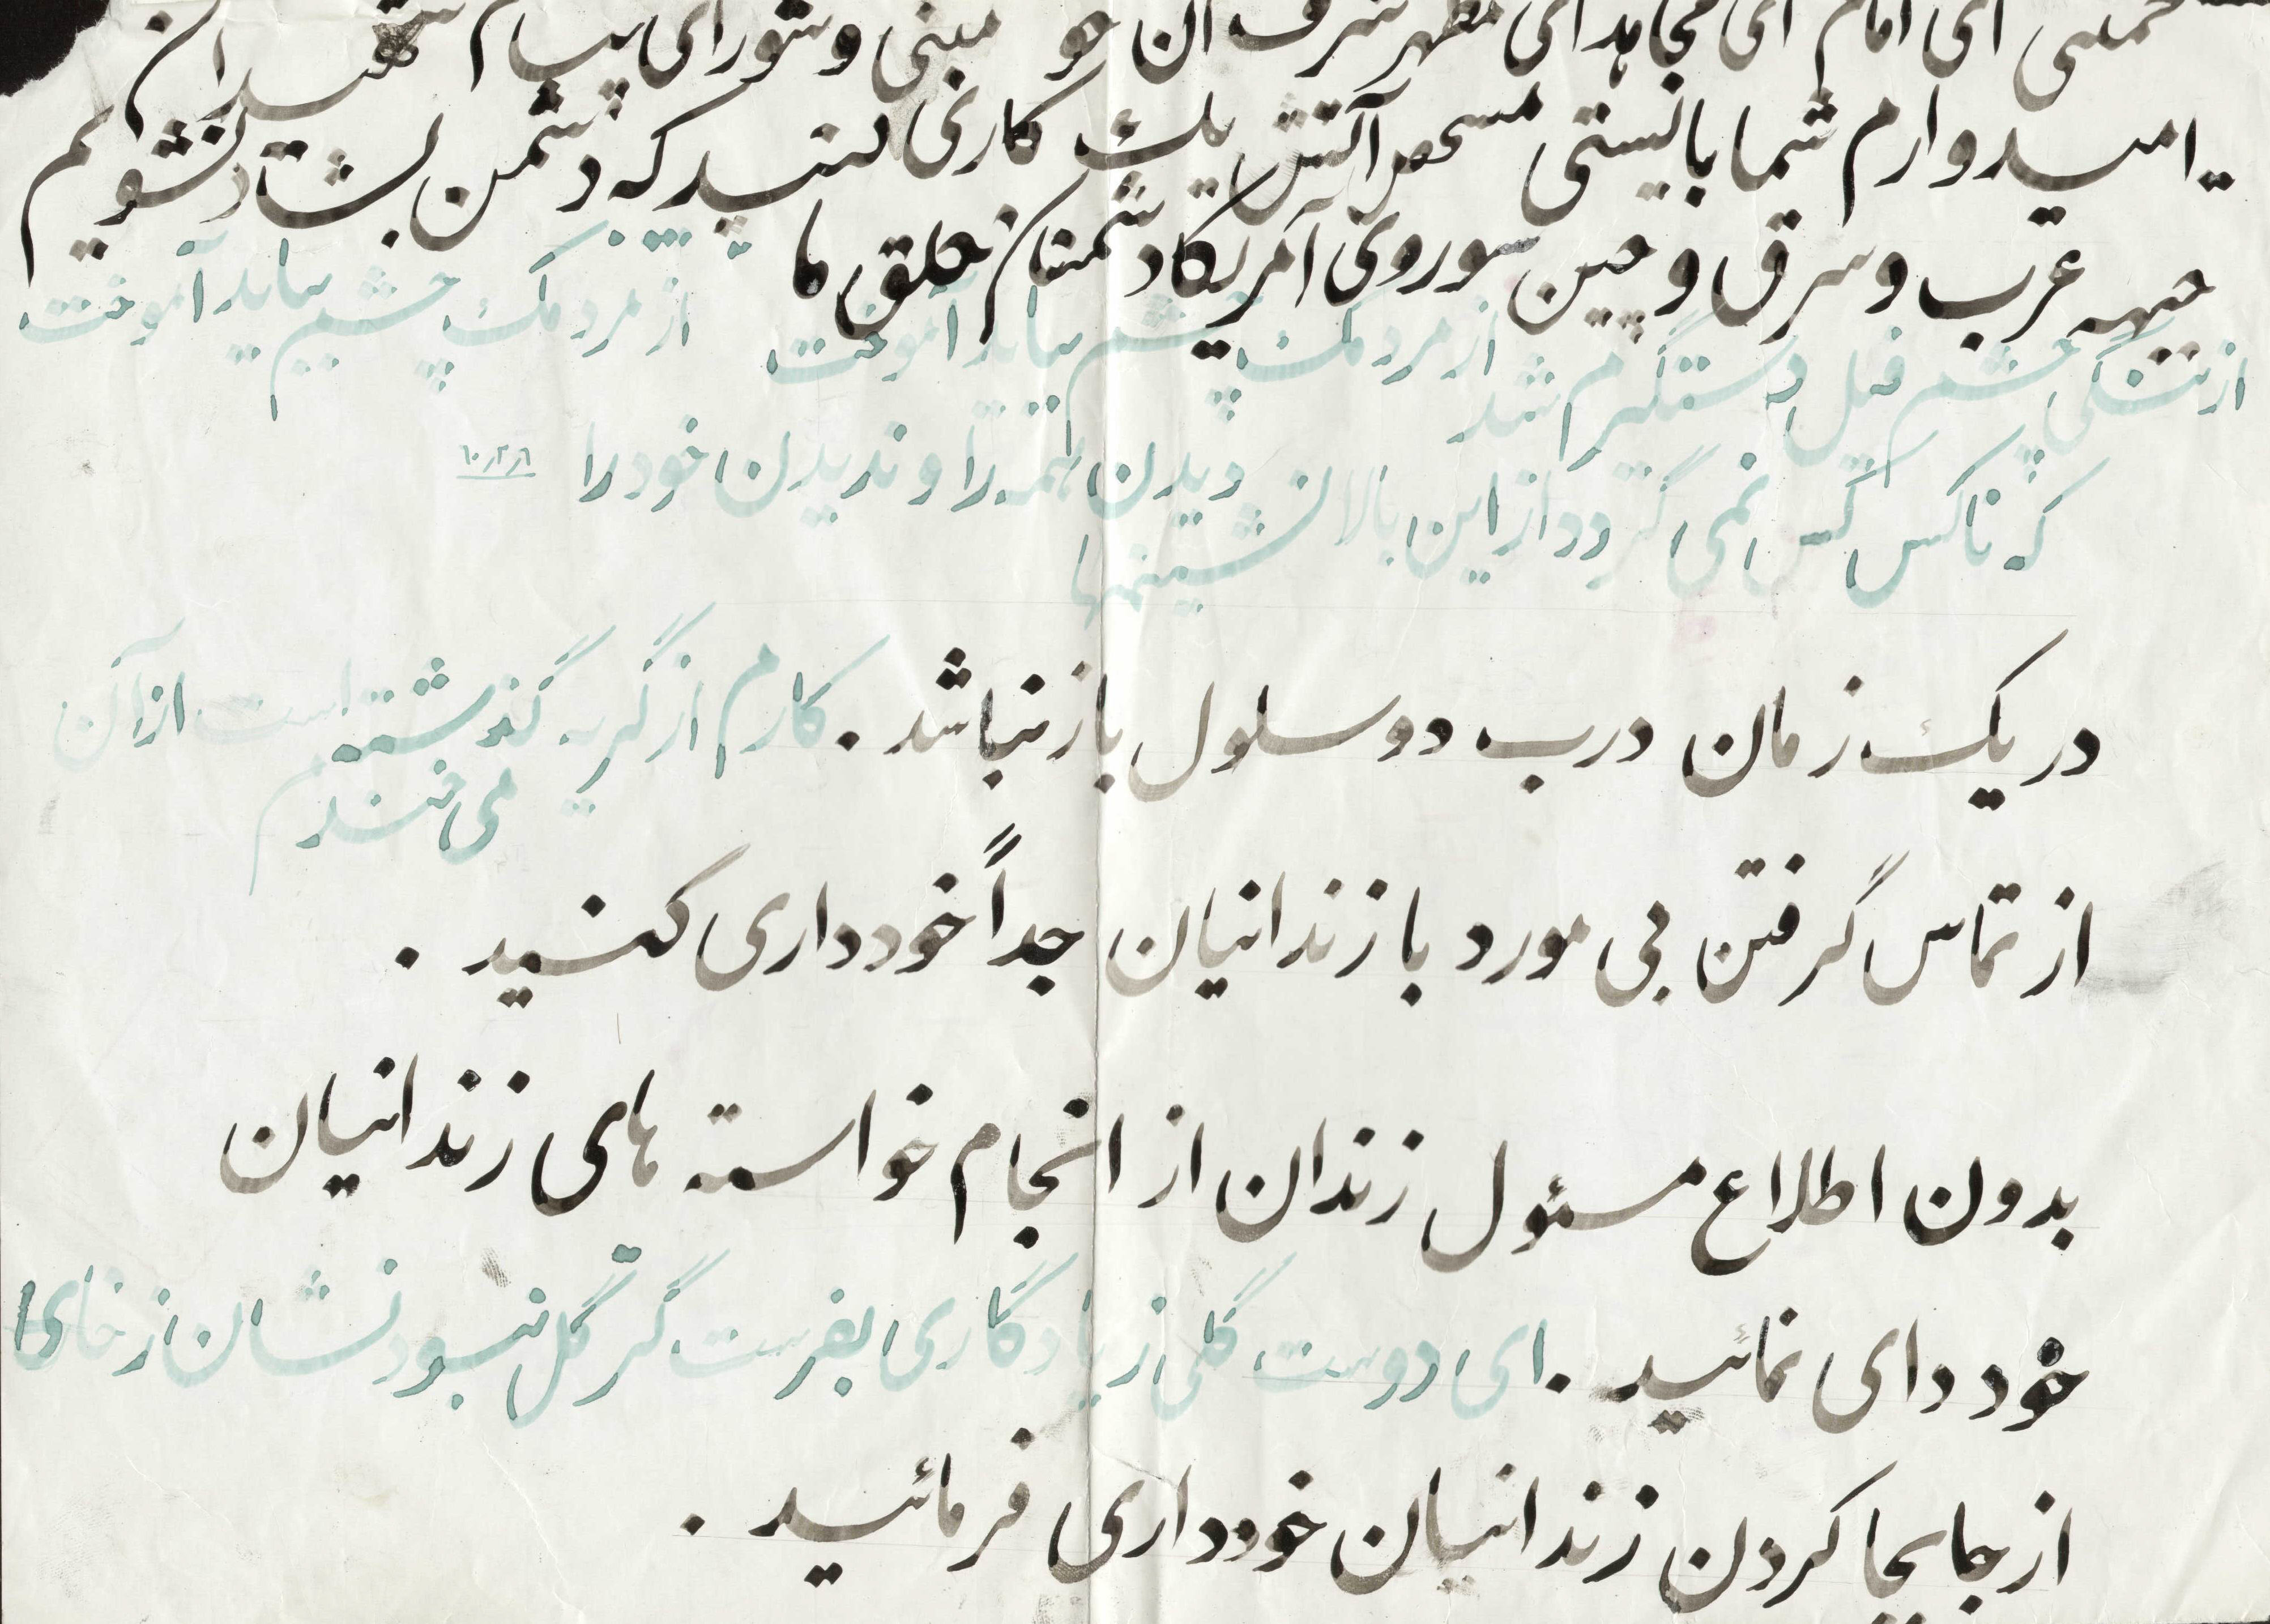 خمینی ای امام ای مجاهد ای مظهر شرف آن جو مبنی و شورای پیام شهیدان
امیدوارم شما بایستی آتش یک کاری کنید که دشمن بشاد نشویم
جبهه غرب و شرق و چین شوروی آمریکا دشمنان خلق ما
از مردمک چشم بباید آموخت از مردمک چشم بباید آموخت
از تنگی چشم فیل دستگیرم شد
دیدن همه را و ندیدن خود را ۶۰/۲/۶
که ناکس کس نمی گردد از این بالا نشینیها
در یک زمان درب دو سلول باز نباشد . کارم از گریه گذشته است از آن
می خندم
از تماس گرفتن بی مورد با زندانیان جداً خودداری کنید .
بدون اطلاع مسئول زندان از انجام خواسته های زندانیان
خوددای نمائید . ای دوست گلی ز یادگاری بفرست گر گل نبود نشان از خای
از جابجا کردن زندانیان خودداری فرمائید .